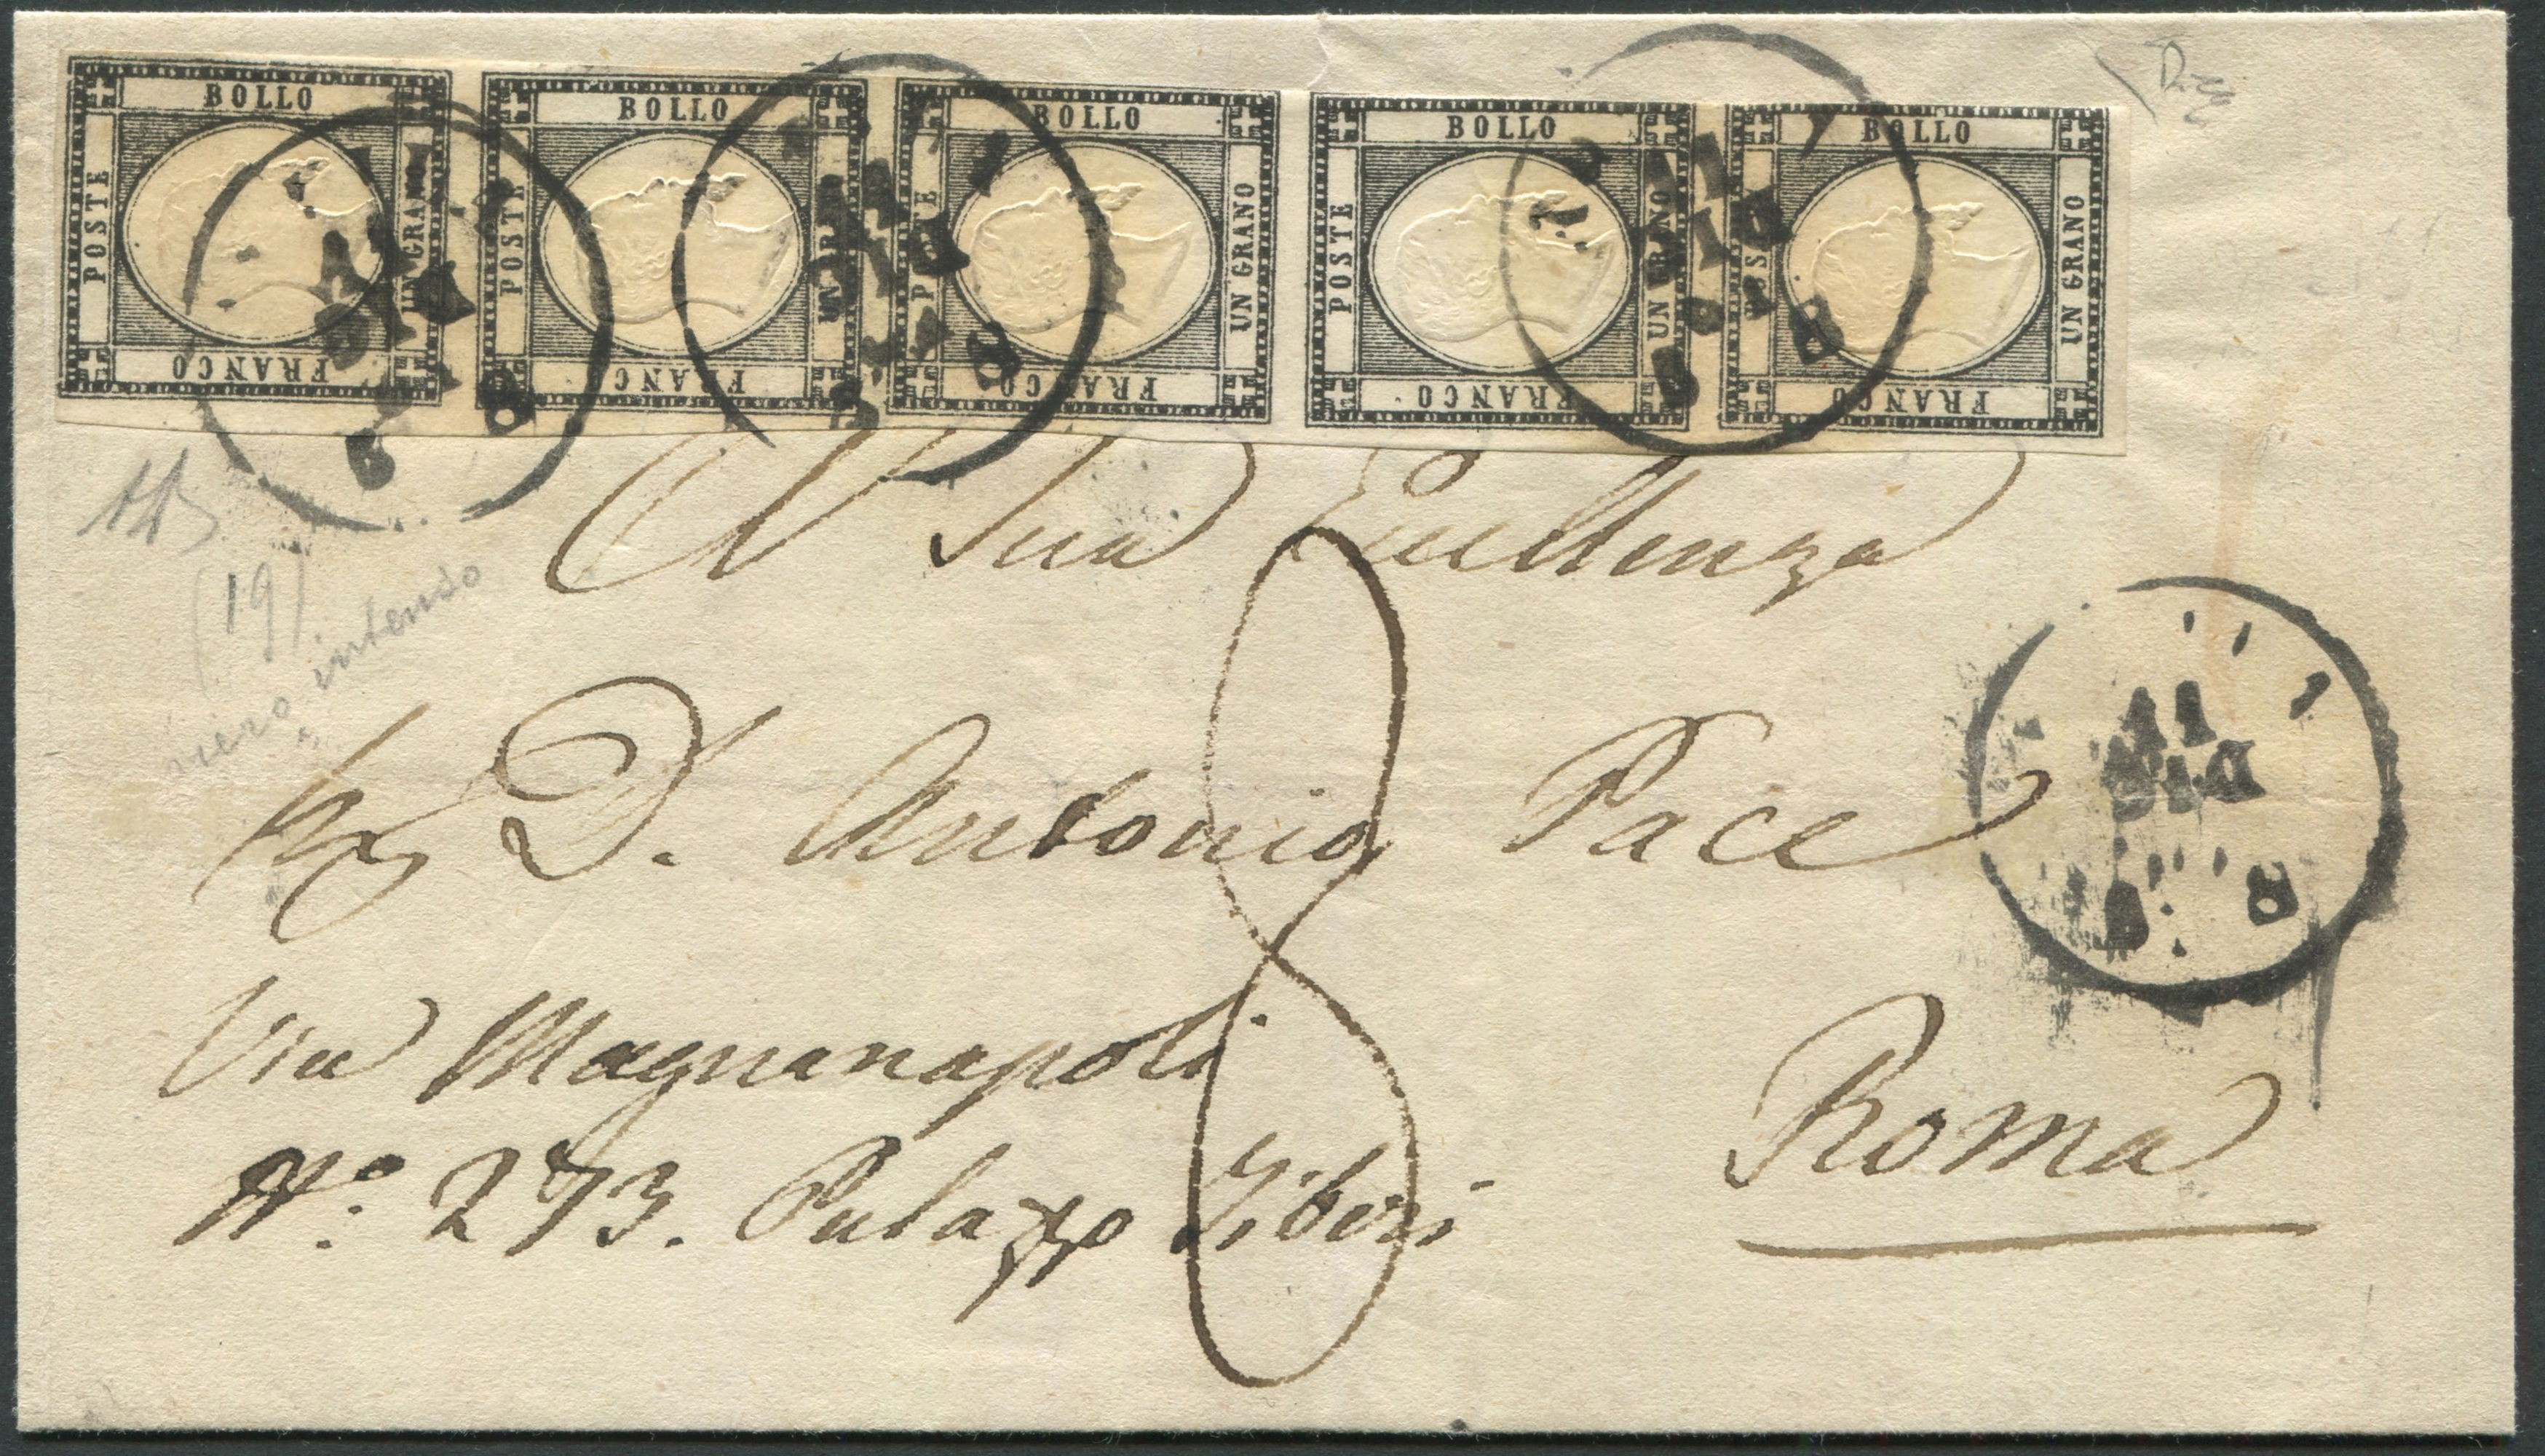 BOLLO BOLLO BOLLO BOLLO BOLLO
POSTE UN GRANO POSTE UN GRANO POSTE UN GRANO POSTE UN GRANO POSTE UN GRANO
FRANCO FRANCO FRANCO FRANCO FRANCO
11 DIC
11 DIC
11 DIC
A Sua Eccellenza
(19)
nero intenso
D. Antonio Pace
11
DIC
Via Magnanapoli
Roma
N.º 273. Palazzo Tiberi
8